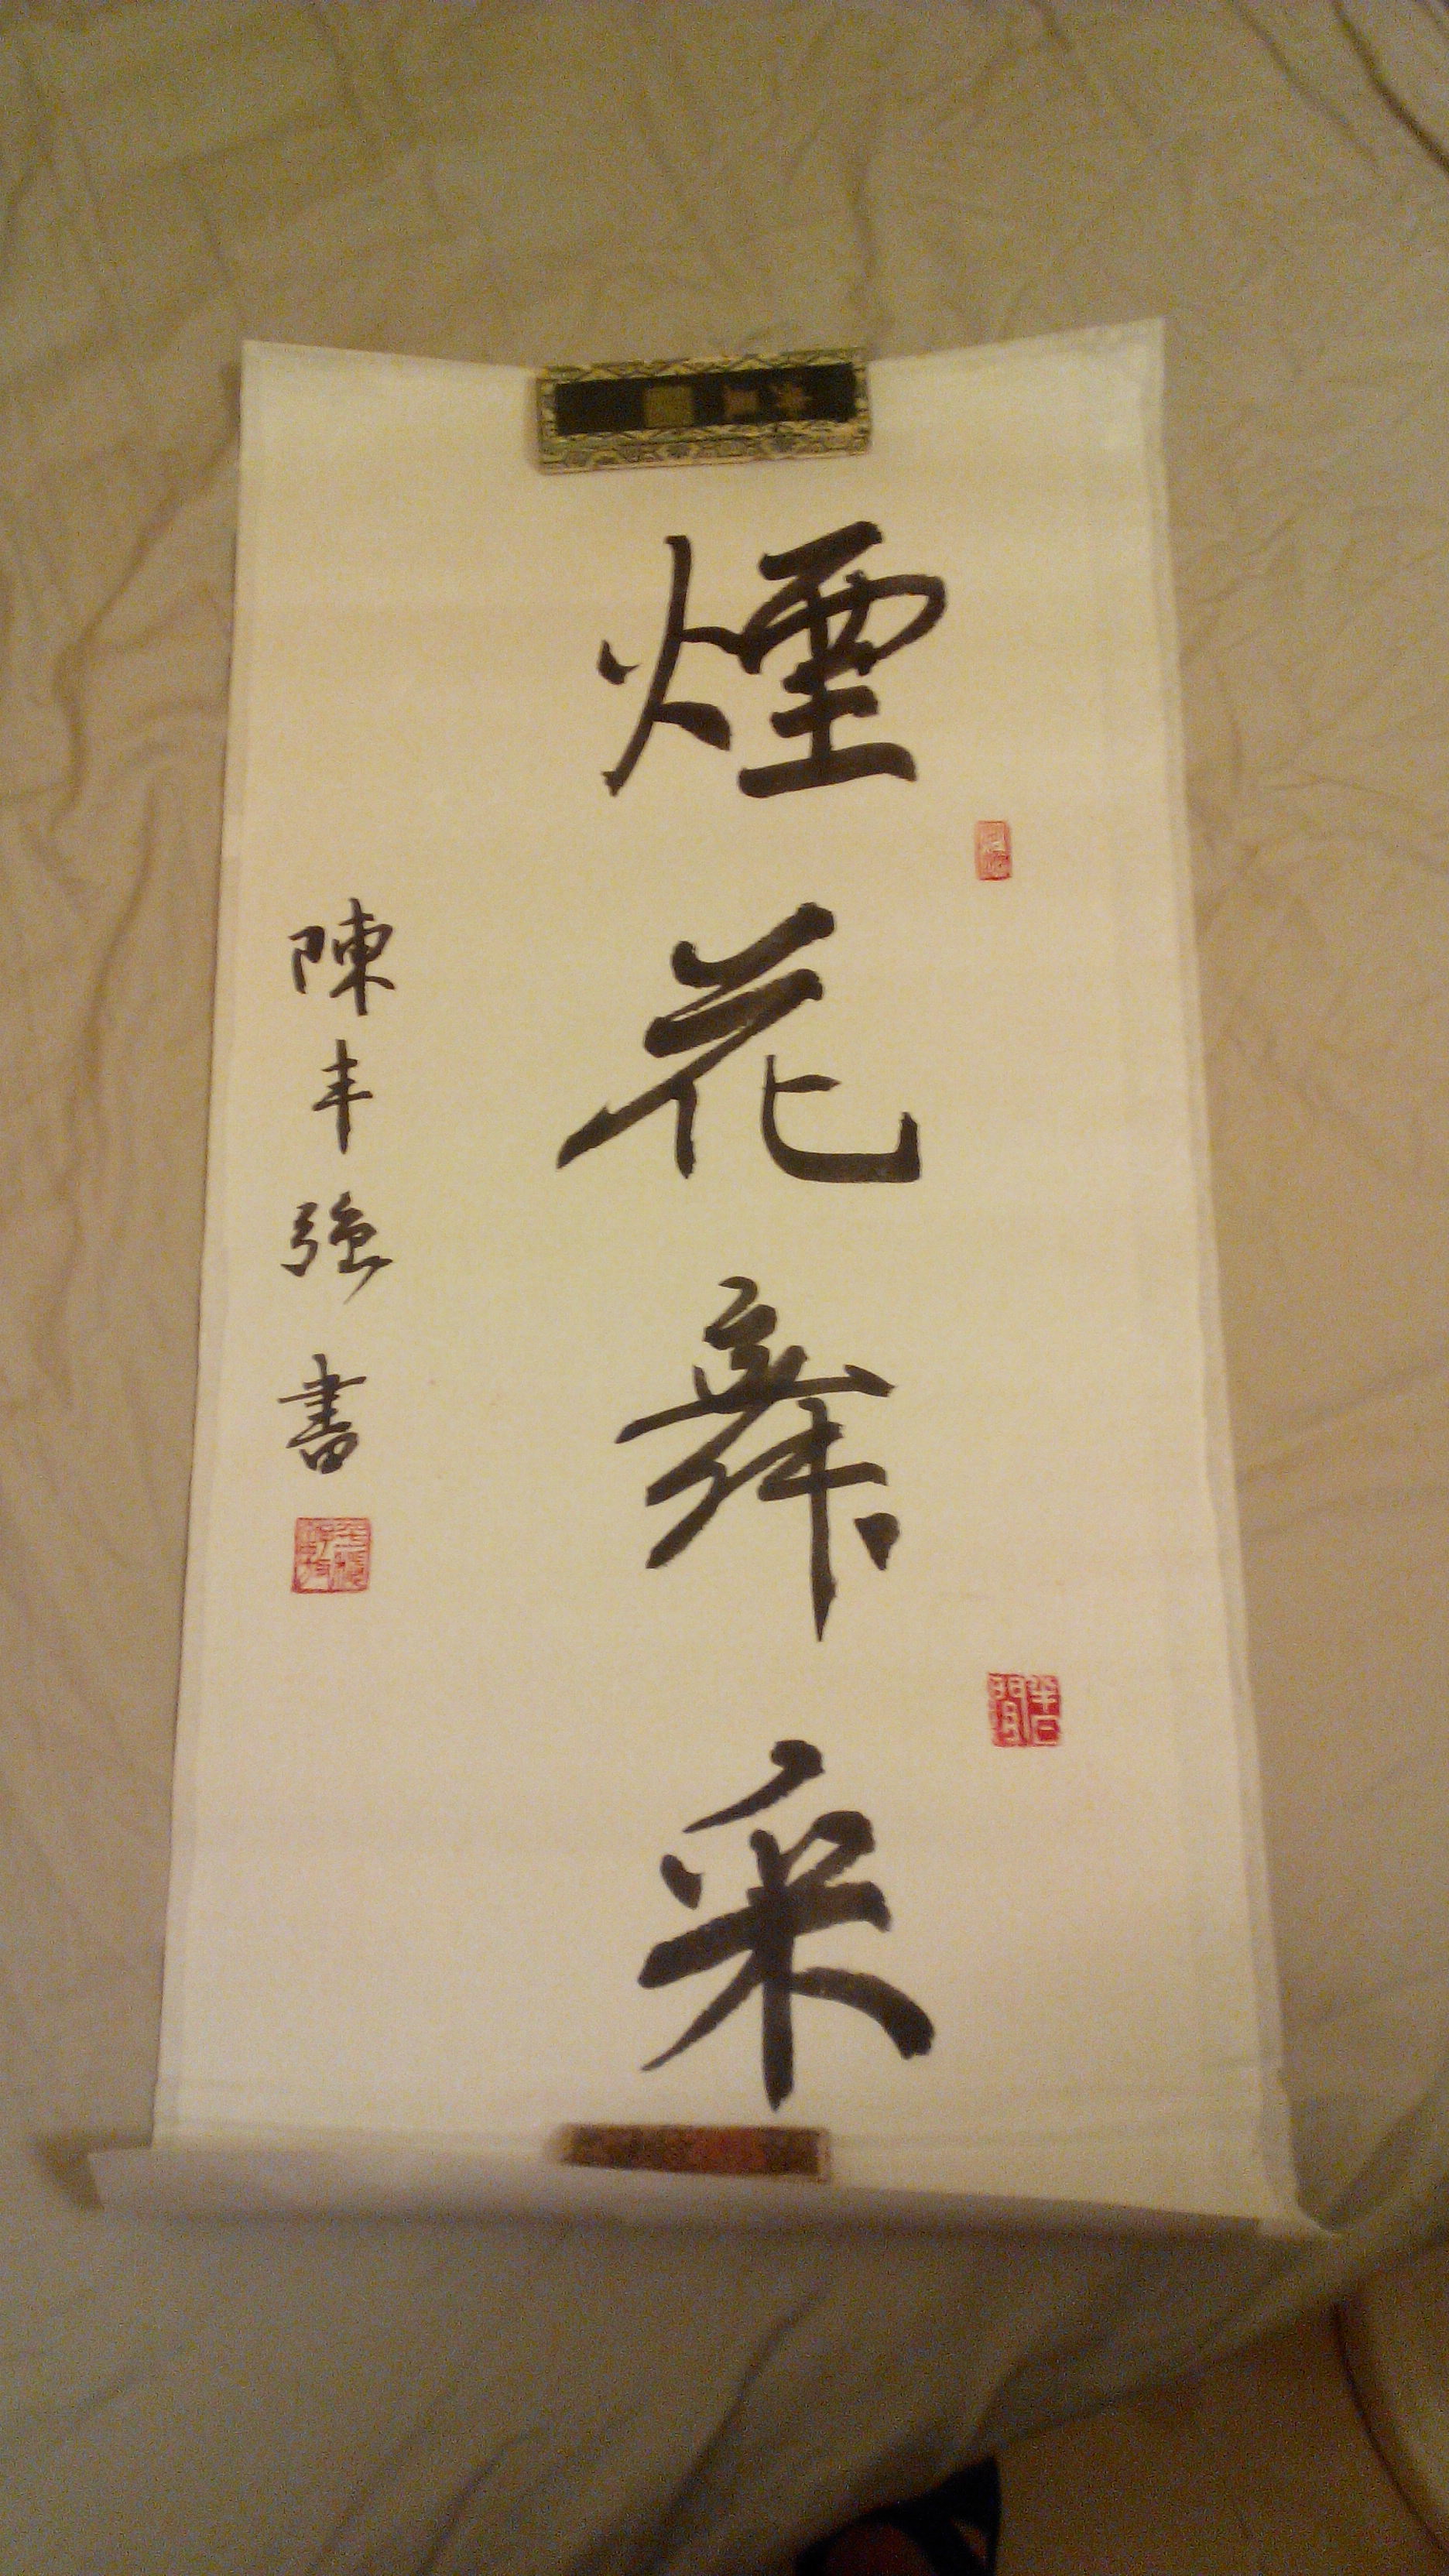 煙花舞采
陳丰強書